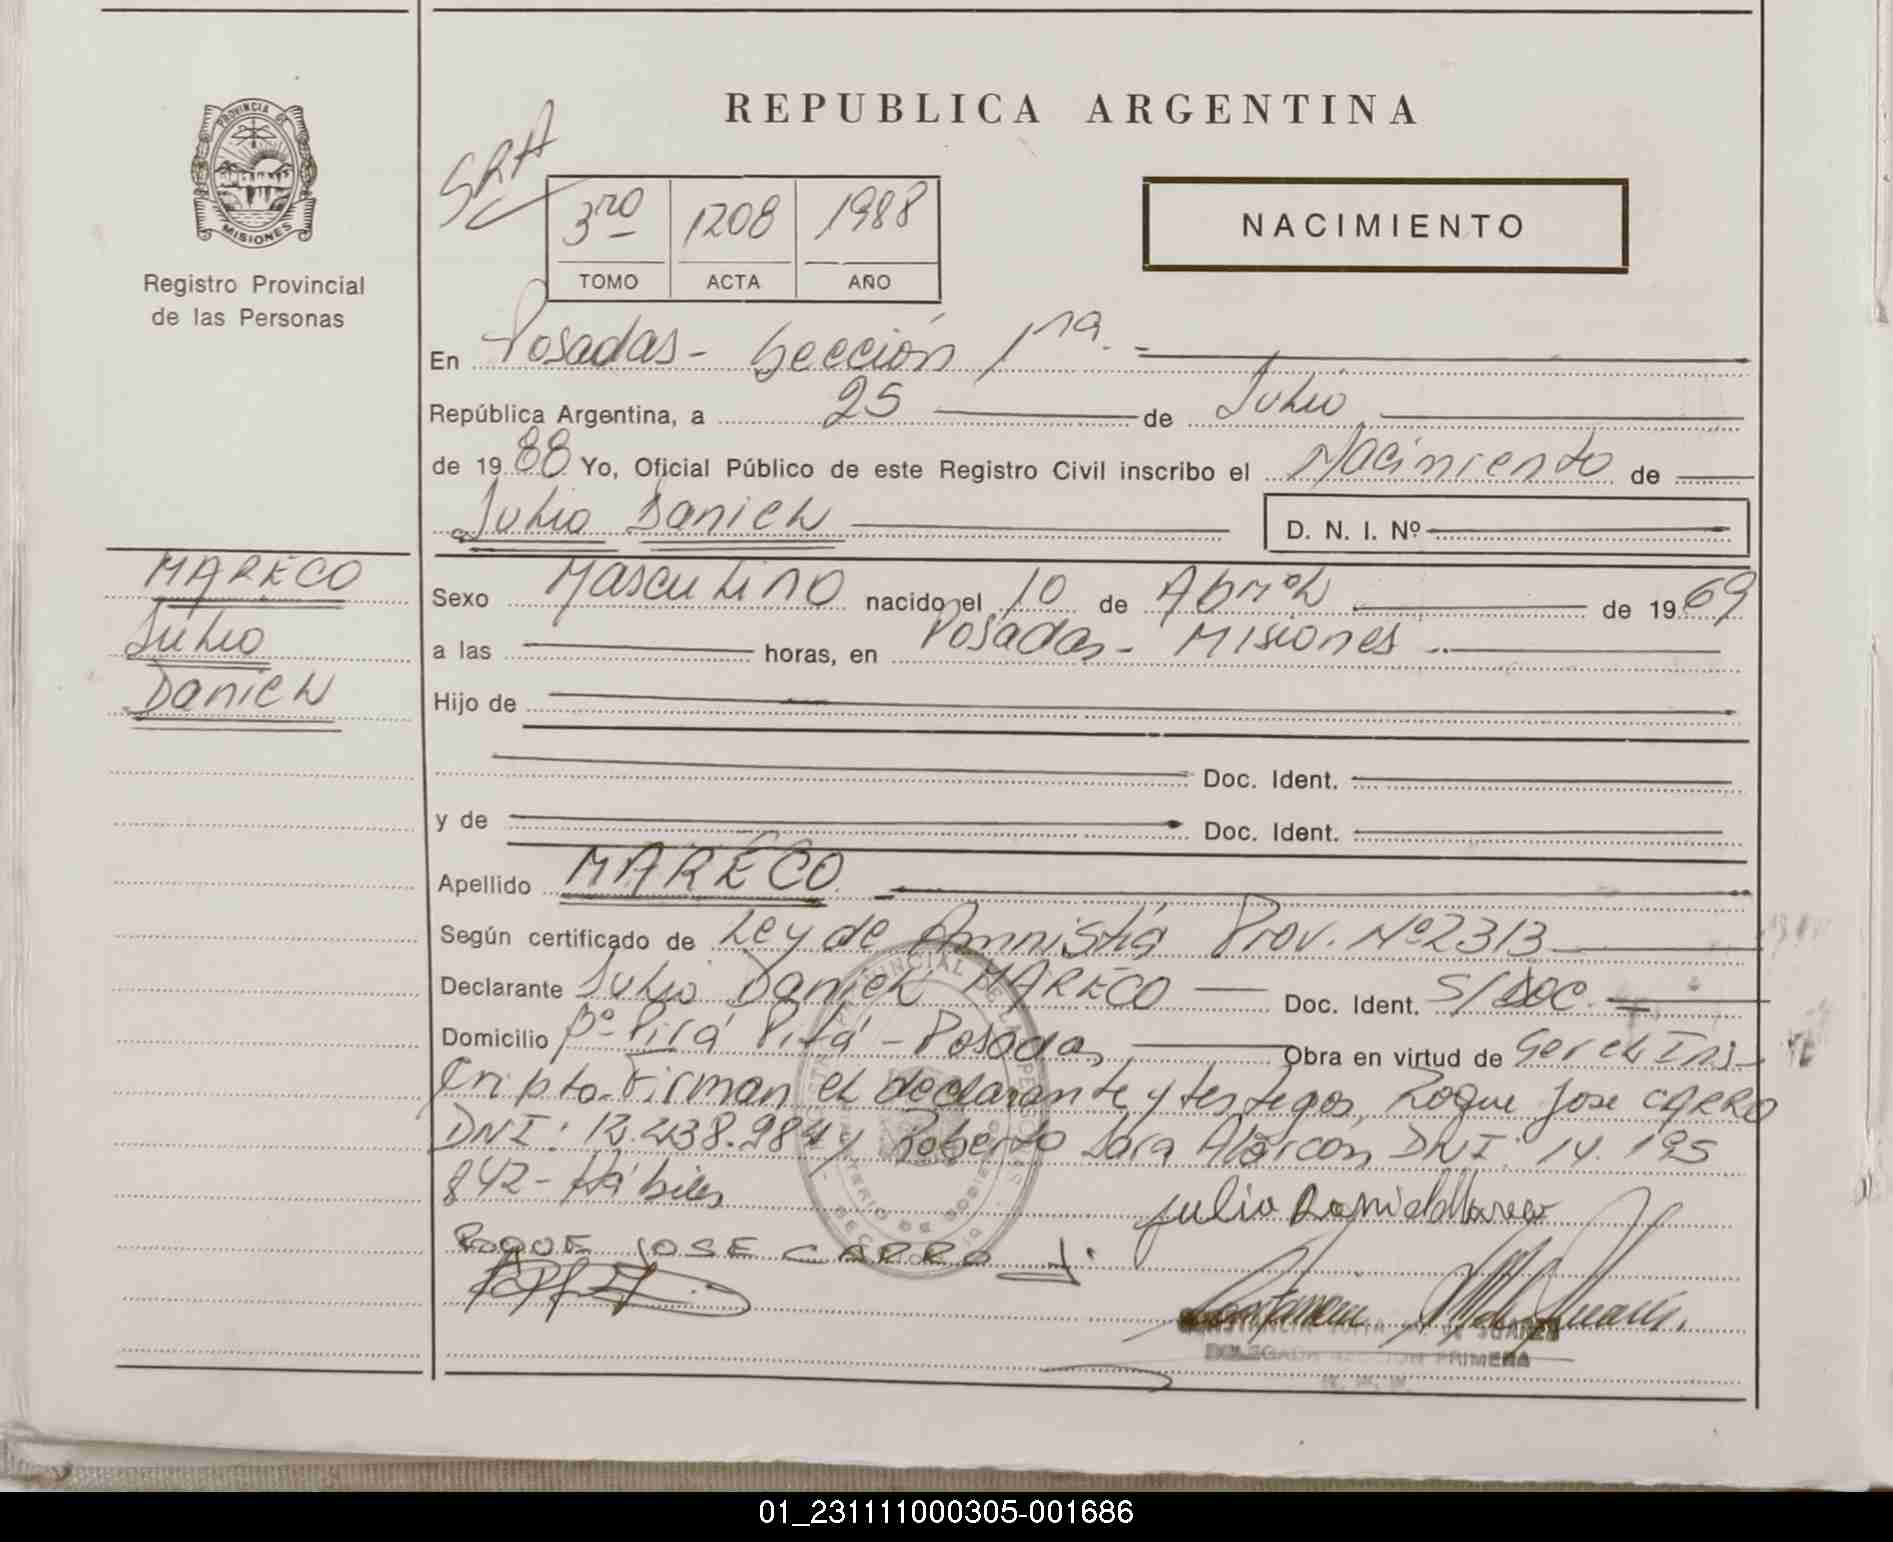 REPUBLICA ARGENTINA
PROVINCIA DE
MISIONES
Registro Provincial
de las Personas
SRA
3ro 1208 1988
TOMO ACTA AÑO
NACIMIENTO
En Posadas - Sección 1ra. -
República Argentina, a 25 de Julio
de 19 88 Yo, Oficial Público de este Registro Civil inscribo el Nacimiento de
Julio Daniel D. N. I. Nº
MARECO
Julio
Daniel
Sexo Masculino nacido el 10 de Abril de 19 69
a las horas, en Posadas - Misiones
Hijo de
Doc. Ident.
y de Doc. Ident.
Apellido MARECO
Según certificado de Ley de Amnistía Prov. Nº 2313
Declarante Julio Daniel MARECO Doc. Ident. S/DOC.
Domicilio Pº Pirá Pitá - Posadas Obra en virtud de Ser el Ins-
cripto. Firman el declarante y testigos, Roque Jose CARRO
DNI: 12.438.984 y Roberto Alarcón DNI: 14.195
842 - Hábiles
Julio Daniel Mareco
ROQUE JOSE CARRO
DELEGADA SECCION PRIMERA
01_231111000305-001686